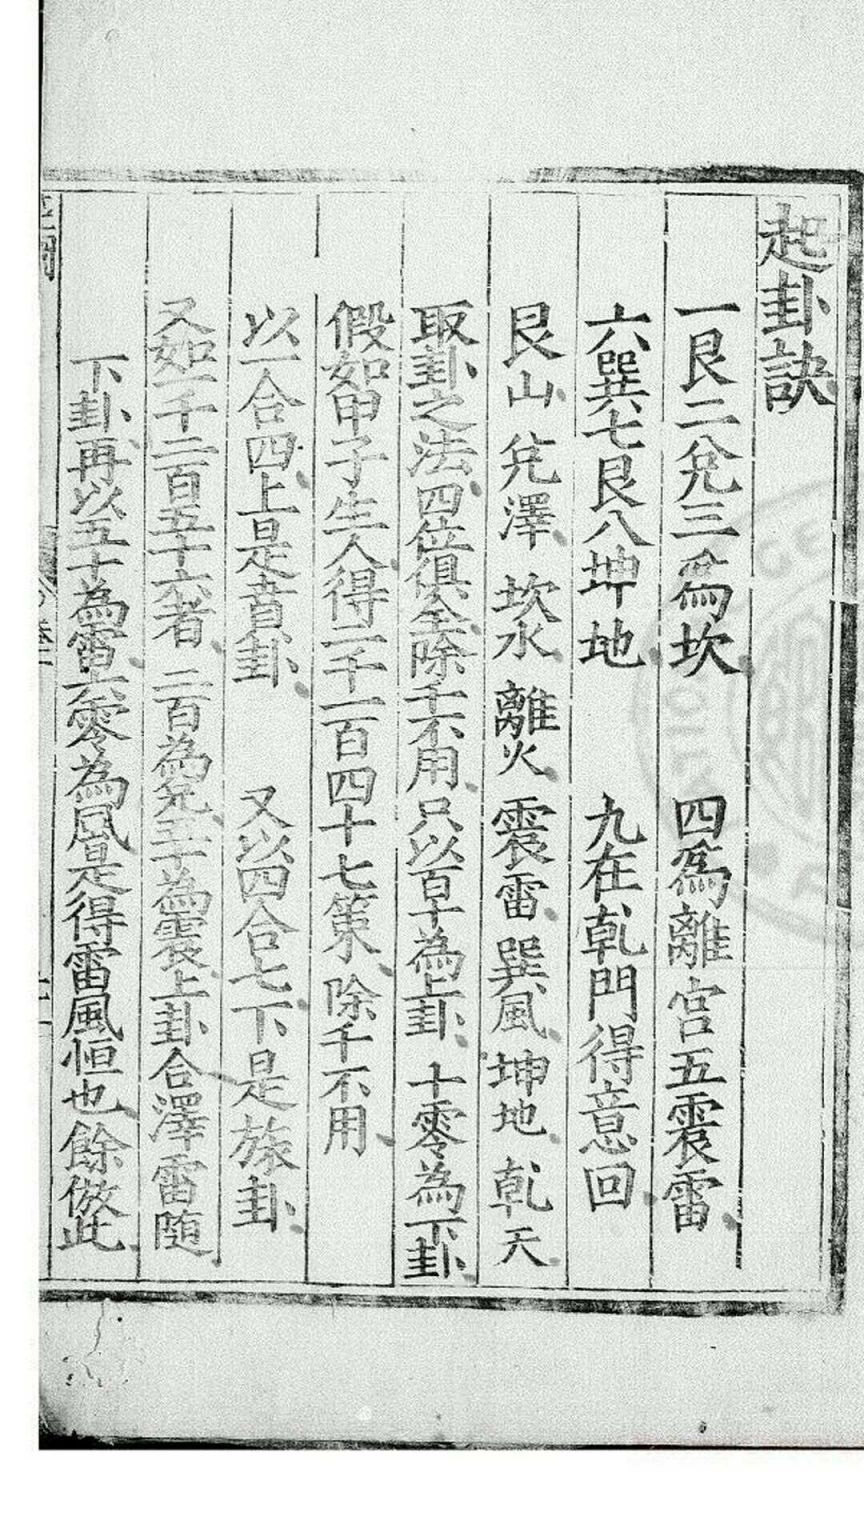 起卦訣
一艮二兊三爲坎　四爲離宮五震雷
六巽七艮八坤地　九在乹門得意回
艮山兊澤坎水離火震雷巽風坤地乹天
取卦之法四位俱全除千不用只以百十為上卦十零為下卦
假如甲子生人得二千一百四十七策除千不用
以一合四上是賁卦　又以四合七下是旅卦
又如一千二百五十六者二百為兊五十為震上卦合澤雷随
下卦再以五十為雷六零為風是得雷風恒也餘倣此